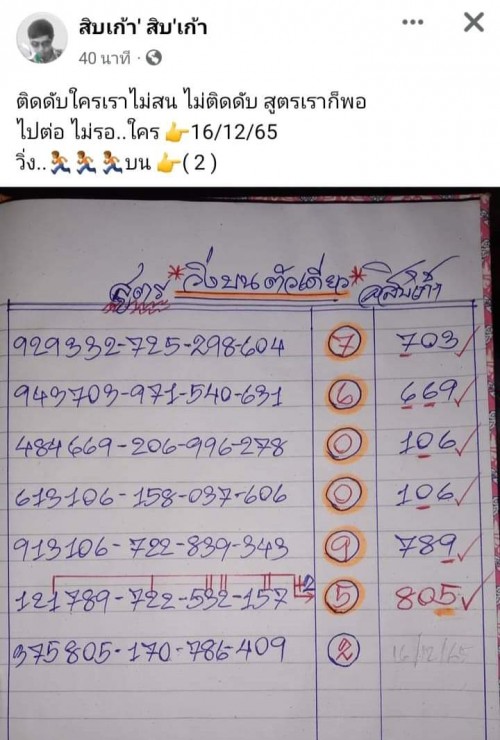 สิบเก้า' สิบ'เก้า
40 นาที
ติดดับใครเราไม่สน ไม่ติดดับ สูตรเราก็พอ
ไปต่อ ไม่รอ..ใคร 👉16/12/65
วิ่ง..🏃🏃🏃บน 👉( 2 )
สูตร *วิ่งบน ตัวเดียว*
929332-725-298-604 7 703
943703-971-540-631 6 669
484669-206-996-278 0 106
613106-158-037-606 0 106
913106-722-839-343 9 789
+2
121789-722-532-157 5 805
375805-170-786-409 2 16/12/65